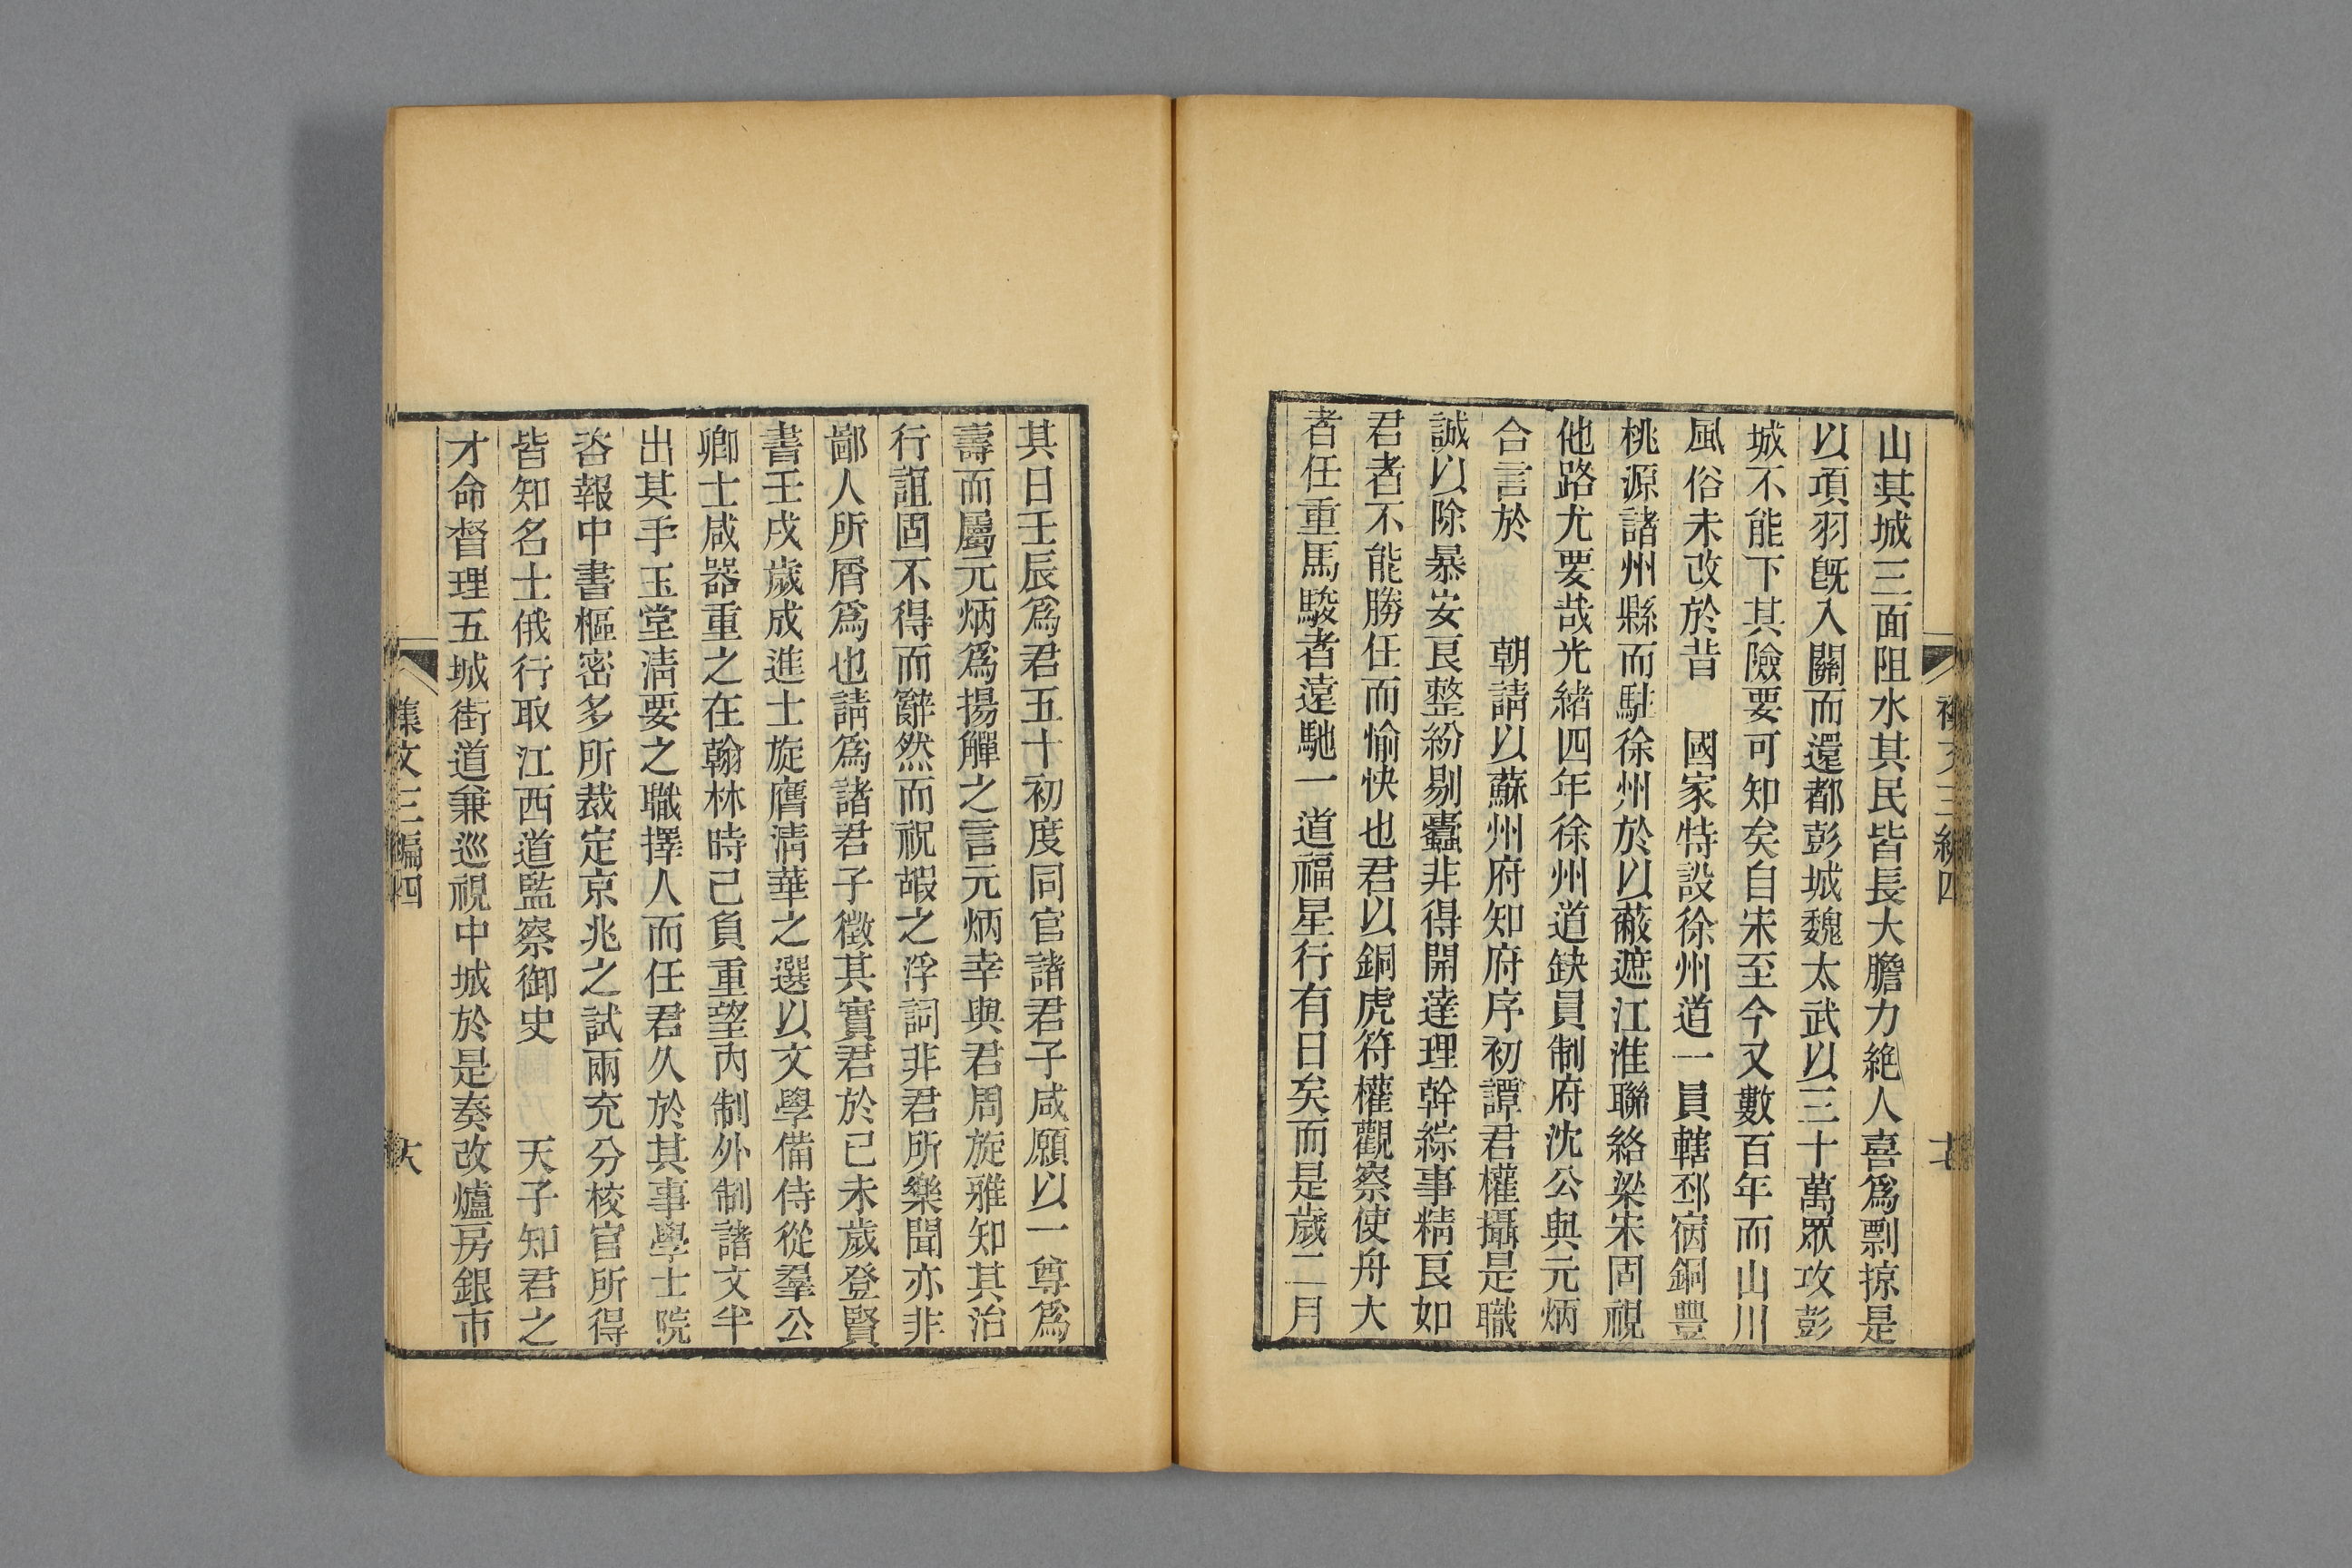 山其城三面阻水其民皆長大膽力絶人喜爲剽掠是
以項羽旣入關而還都彭城魏太武以三十萬眾攻彭
城不能下其險要可知矣自宋至今又數百年而山川
風俗未改於昔　國家特設徐州道一員轄邳宿銅豐
桃源諸州縣而駐徐州於以蔽遮江淮聯絡梁宋固視
他路尤要哉光緒四年徐州道缺員制府沈公與元炳
合言於　　朝請以蘇州府知府序初譚君權攝是職
誠以除暴安良整紛剔蠹非得開達理幹綜事精良如
君者不能勝任而愉快也君以銅虎符權觀察使舟大
者任重馬駿者遠馳一道福星行有日矣而是歲二月
其日壬辰爲君五十初度同官諸君子咸願以一尊爲
壽而屬元炳爲揚觶之言元炳幸與君周旋雅知其治
行誼固不得而辭然而祝嘏之浮詞非君所樂聞亦非
鄙人所屑爲也請爲諸君子徵其實君於己未歲登賢
書壬戌歲成進士旋膺淸華之選以文學備侍從羣公
卿士咸器重之在翰林時已負重望內制外制諸文半
出其手玉堂淸要之職擇人而任君久於其事學士院
咨報中書樞密多所裁定京兆之試兩充分校官所得
皆知名士俄行取江西道監察御史　　天子知君之
才命督理五城街道兼巡視中城於是奏改爐房銀市
集文三編四